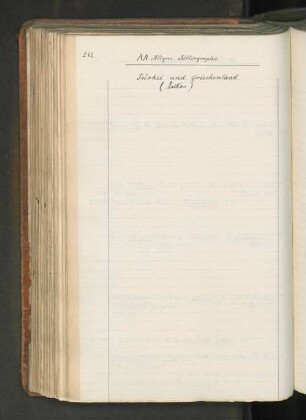 AA Allgem. Bibliographie.
Türkei und Griechenland
(Balkan)